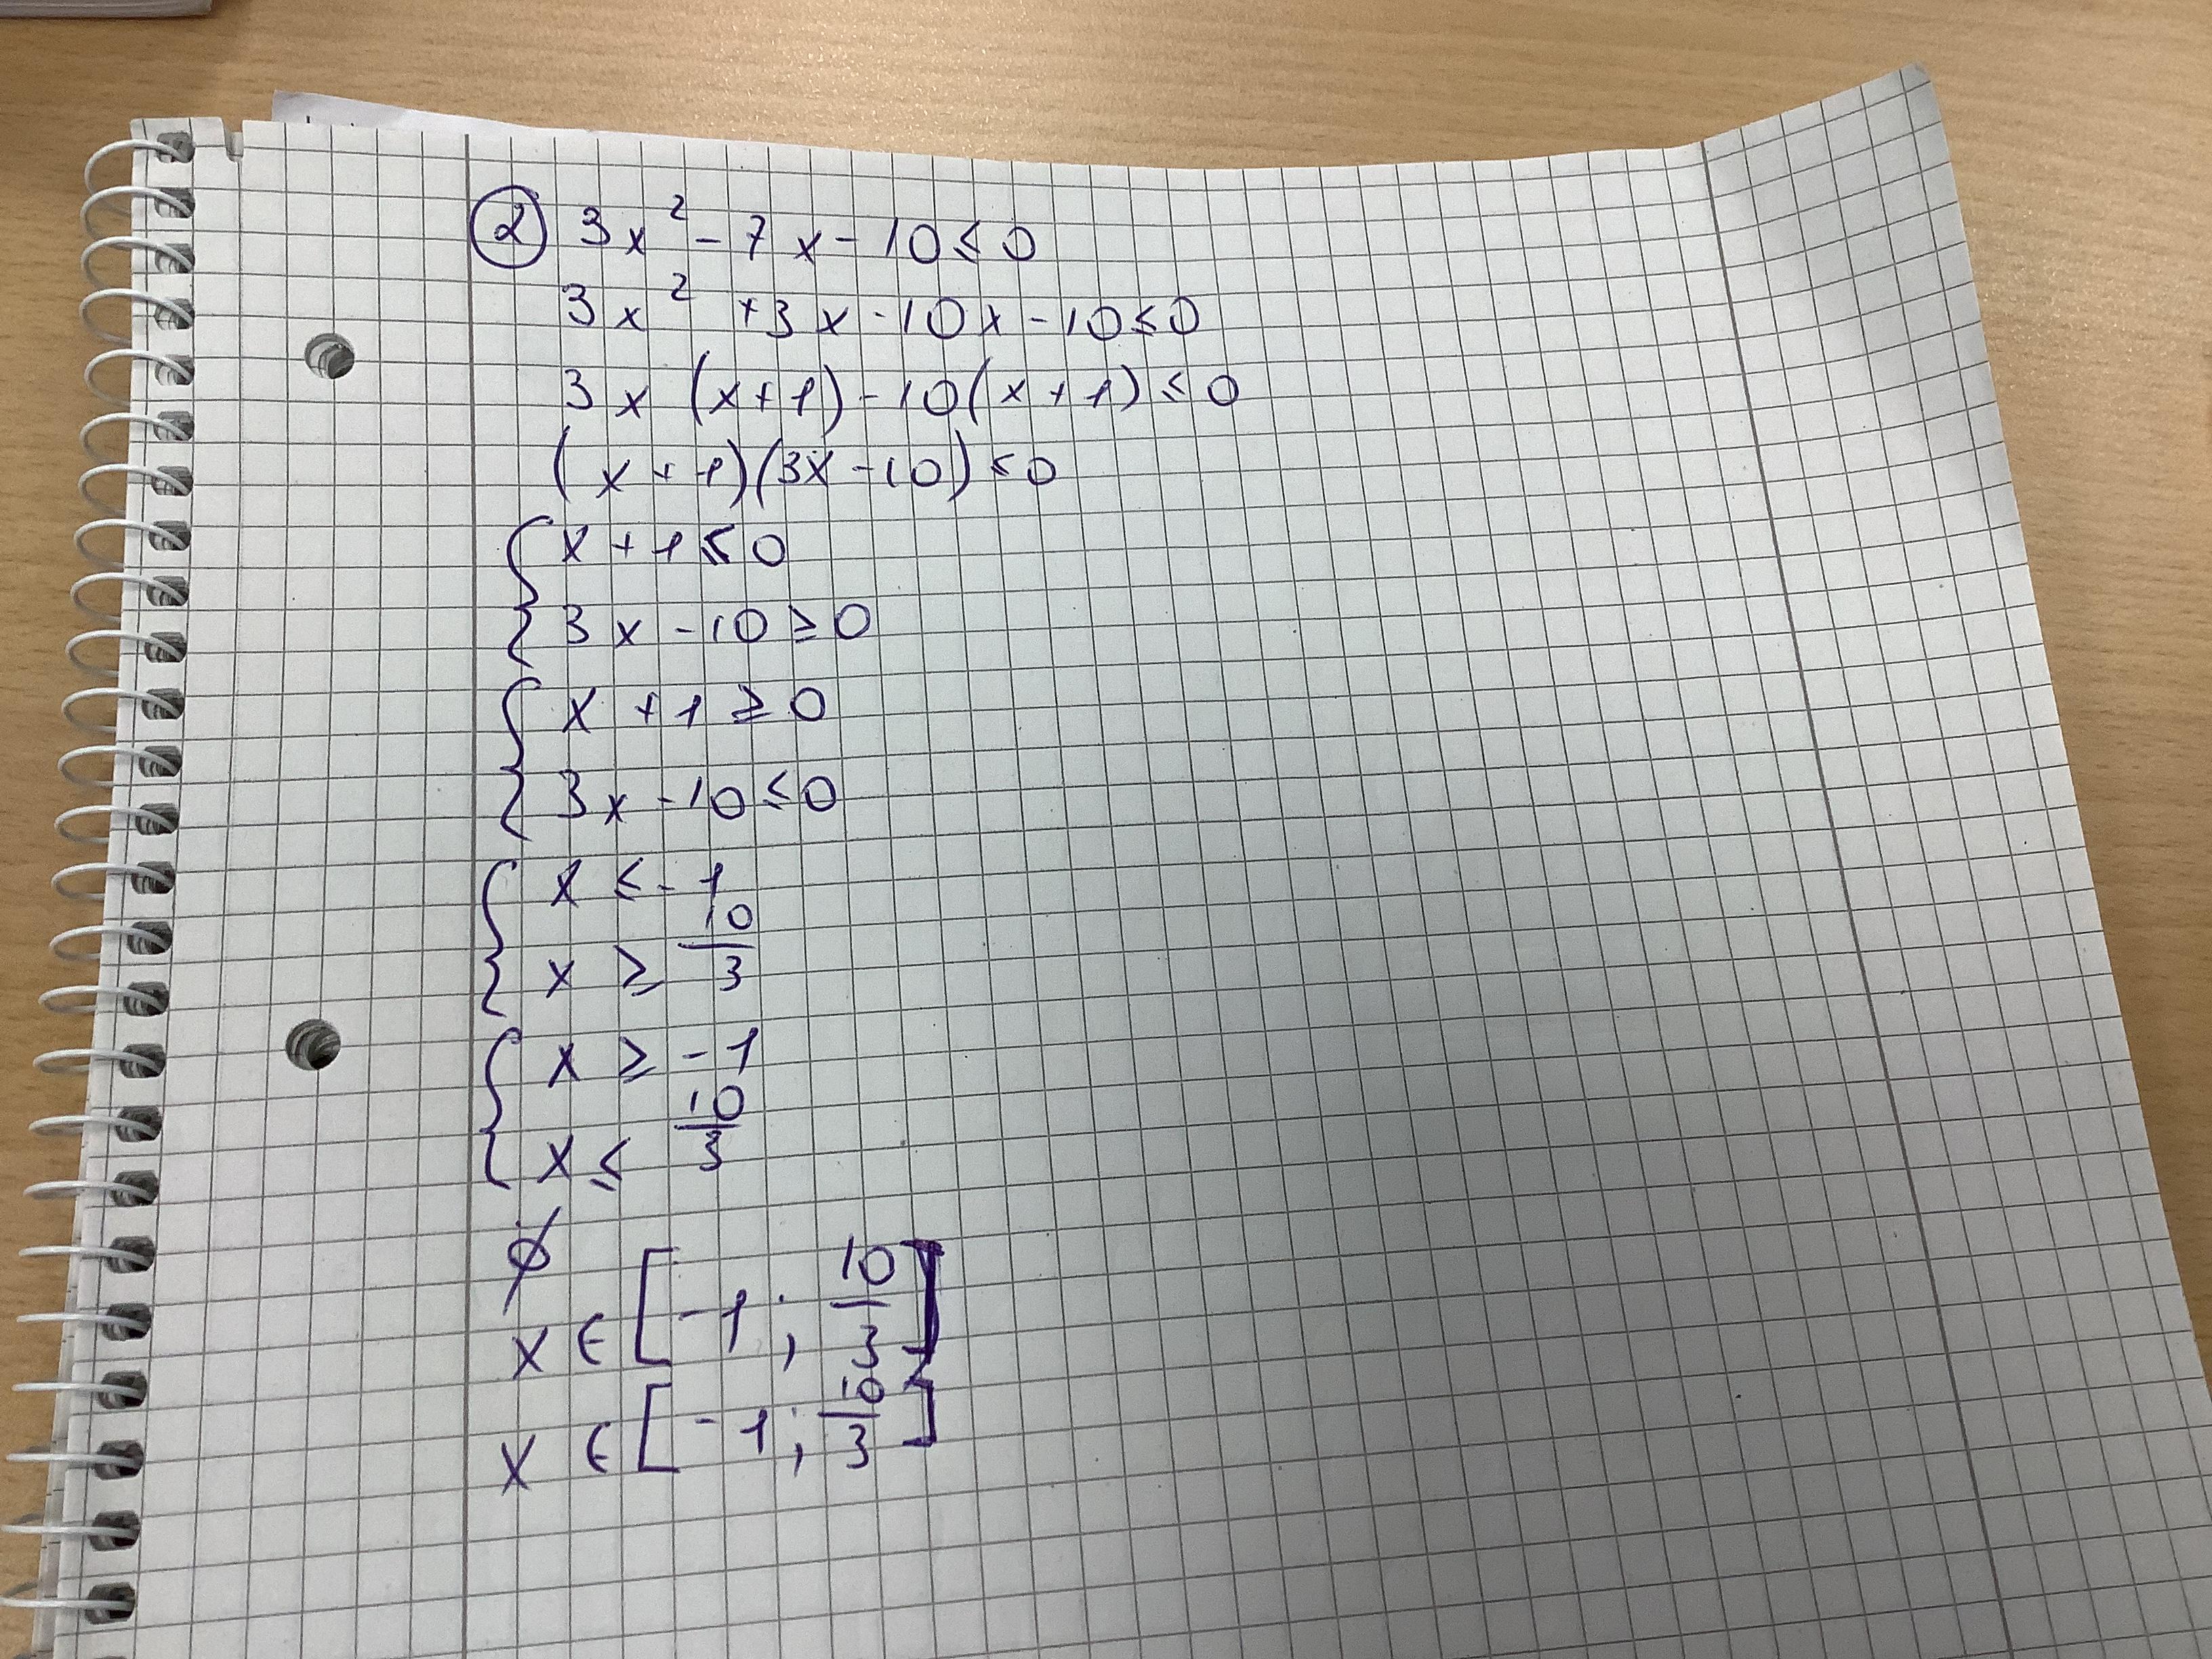 ② 3x² - 7x - 10 ≤ 0
3x² + 3x - 10x - 10 ≤ 0
3x (x + 1) - 10 (x + 1) ≤ 0
(x + 1)(3x - 10) ≤ 0
{ x + 1 ≤ 0
{ 3x - 10 ≥ 0
{ x + 1 ≥ 0
{ 3x - 10 ≤ 0
{ x ≤ -1
{ x ≥ 10/3
{ x ≥ -1
{ x ≤ 10/3
∅
x ∈ [-1; 10/3]
x ∈ [-1; 10/3]